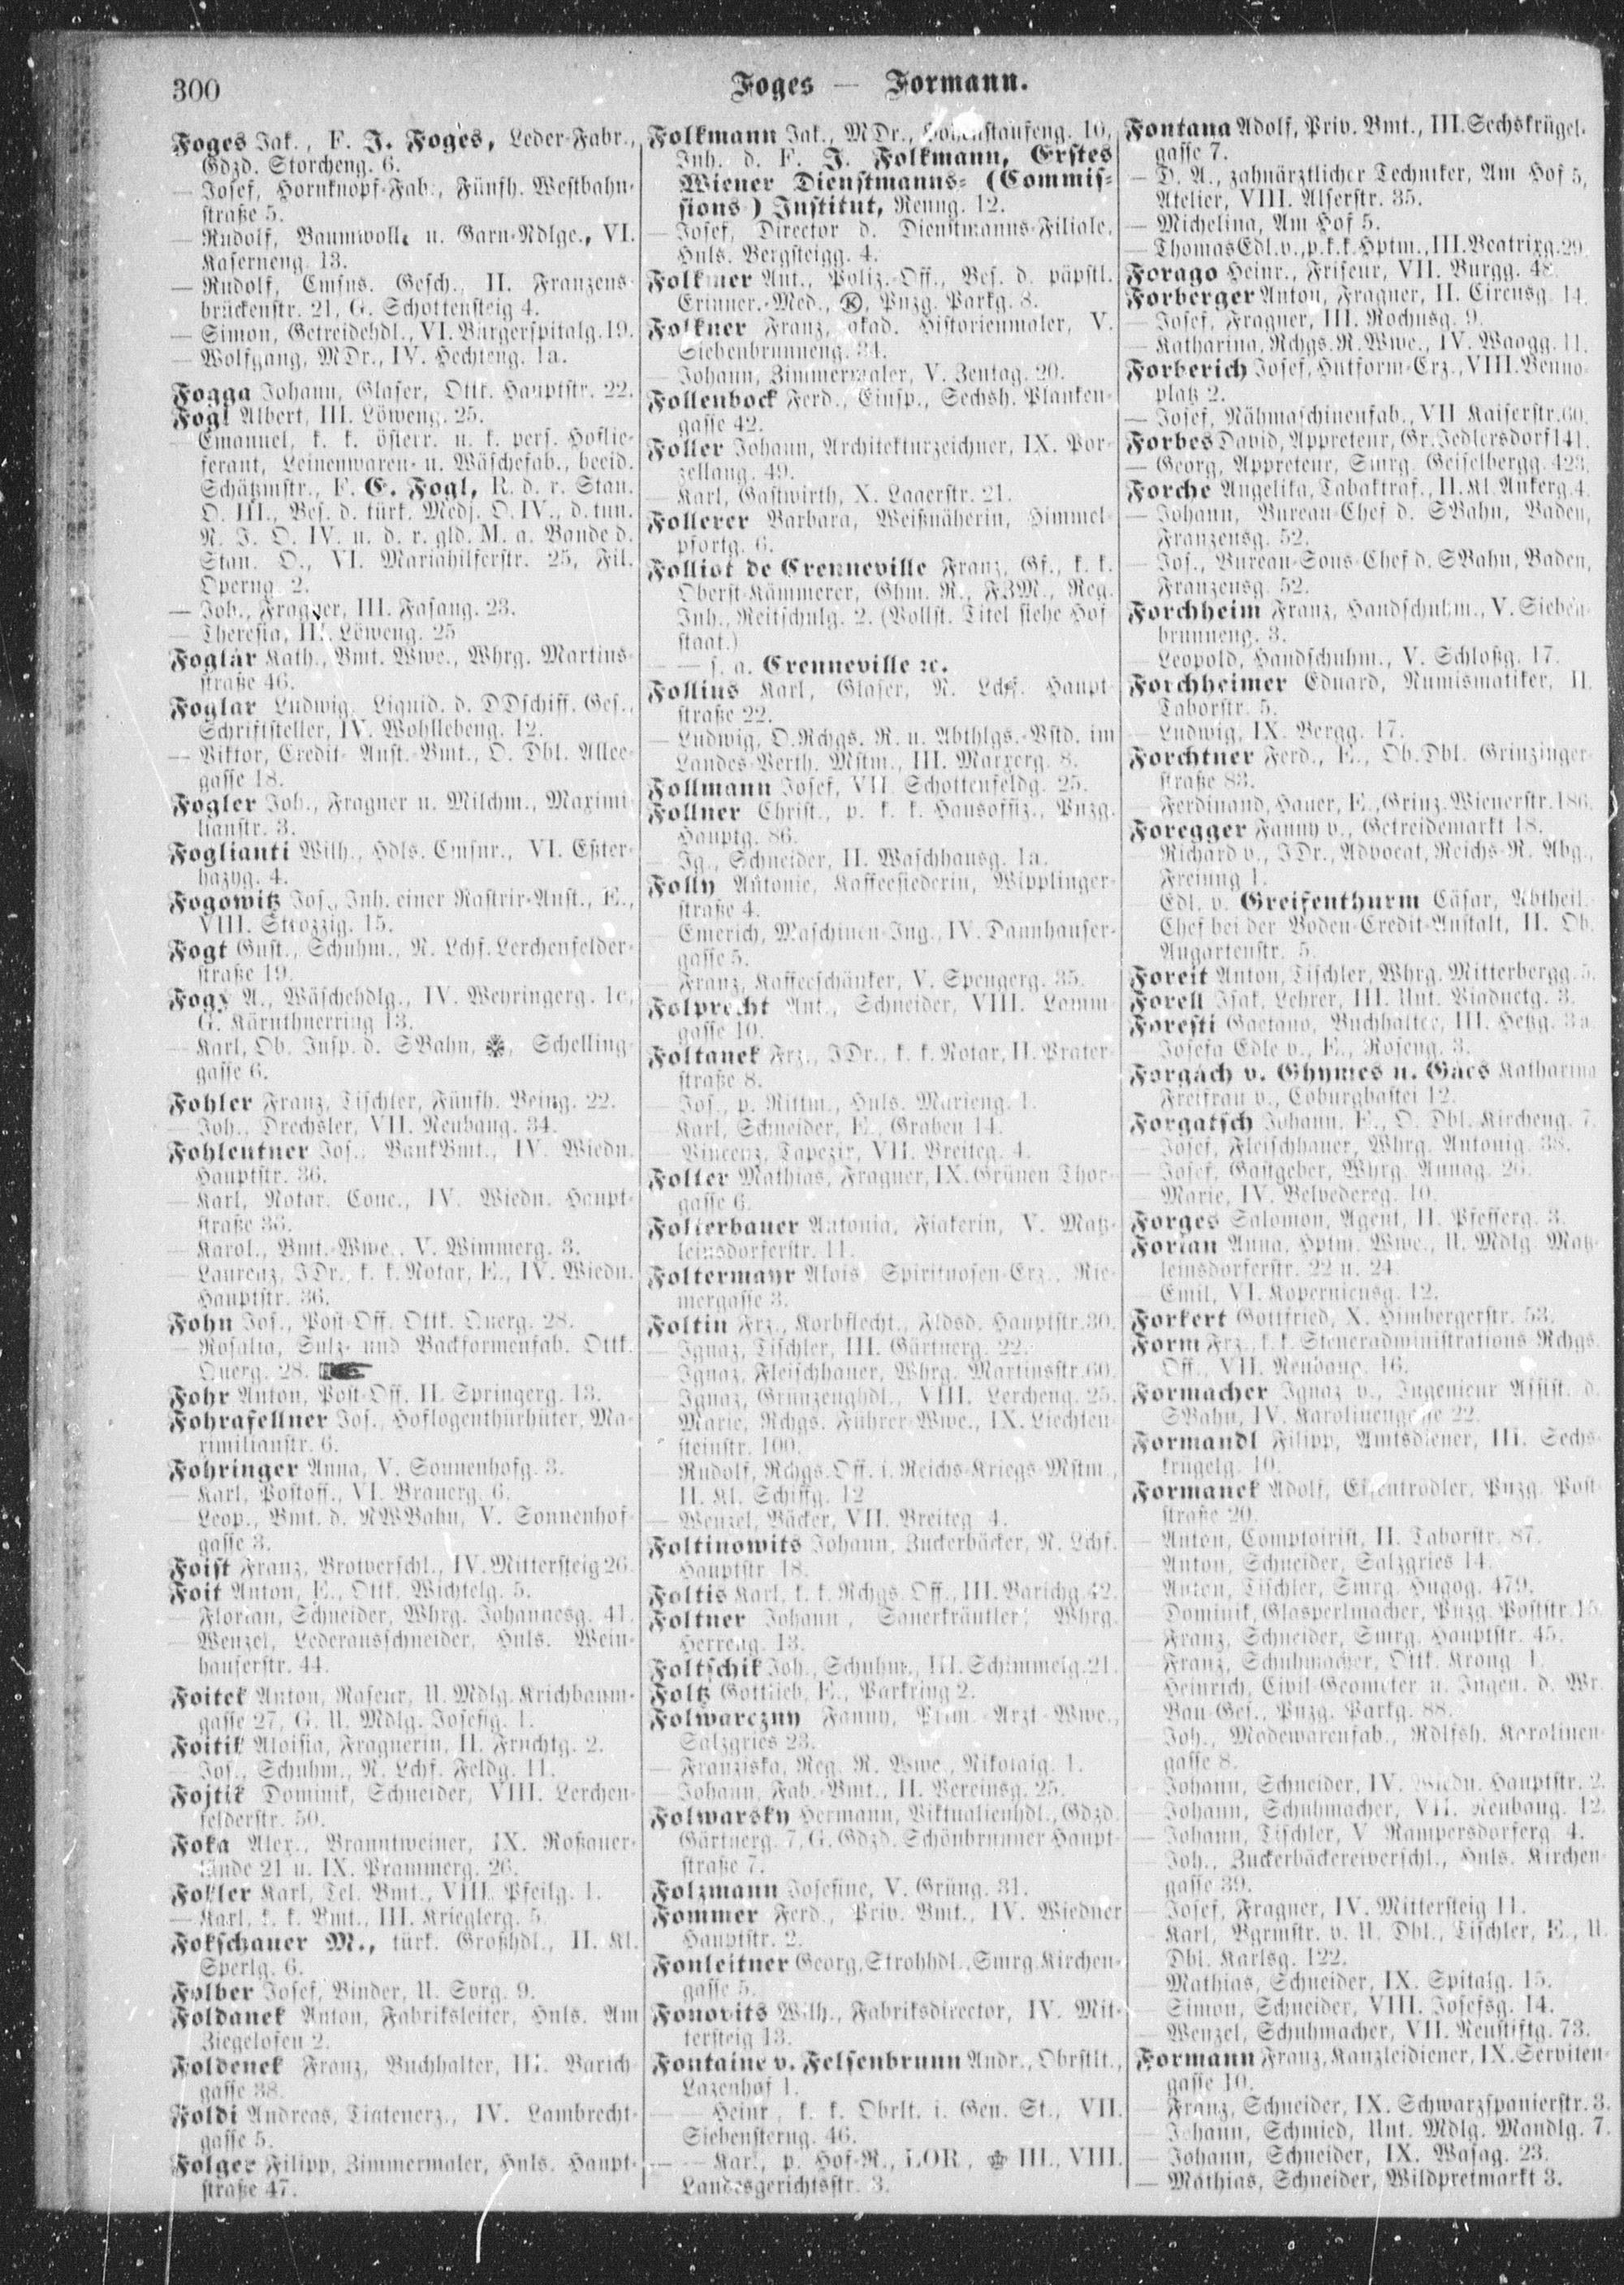 300
Foges — Formann.
Foges Jak., F. J. Foges, Leder-Fabr.,
Gdzd. Storcheng. 6.
— Josef, Hornknopf-Fab., Fünfh. Westbahn-
straße 5.
— Rudolf, Baumwoll- u. Garn-Ndlge., VI.
Kaserneng. 13.
— Rudolf, Cmsns. Gesch., II. Franzens-
brückenstr. 21, G. Schottensteig 4.
— Simon, Getreidehdl., VI. Bürgerspitalg. 19.
— Wolfgang, MDr., IV. Hechteng. 1a.
Fogga Johann, Glaser, Ottk. Hauptstr. 22.
Fogl Albert, III. Löweng. 25.
— Emanuel, k. k. österr. u. k. pers. Hoflie-
ferant, Leinenwaren- u. Wäschefab., beeid.
Schätzmstr., F. E. Fogl, R. d. r. Stan.
O. III., Bes. d. türk. Medj. O. IV., d. tun.
N. J. O. IV. u. d. r. gld. M. a. Bande d.
Stan. O., VI. Mariahilferstr. 25, Fil.
Operng. 2.
— Joh., Fragner, III. Fasang. 23.
— Theresia, III. Löweng. 25
Foglár Kath., Bmt. Wwe., Whrg. Martins-
straße 46.
Foglar Ludwig, Liquid. d. DDschiff. Ges.,
Schriftsteller, IV. Wohllebeng. 12.
— Viktor, Credit-Anst.-Bmt., O. Dbl. Allee-
gasse 18.
Fogler Joh., Fragner u. Milchm., Maximi-
lianstr. 3.
Foglianti Wilh., Hdls. Cmsnr., VI. Eßter-
hazyg. 4.
Fogowitz Jos., Inh. einer Rastrir-Anst., E.,
VIII. Strozzig. 15.
Fogt Gust., Schuhm., N. Lchf. Lerchenfelder-
straße 19.
Fogy A., Wäschehdlg., IV. Weyringerg. 1c,
G. Kärnthnerring 13.
— Karl, Ob. Insp. d. SBahn, Schelling-
gasse 6.
Fohler Franz, Tischler, Fünfh. Being. 22.
— Joh., Drechsler, VII. Neubaug. 34.
Fohlentner Jos., BankBmt., IV. Wiedn.
Hauptstr. 36.
— Karl, Notar. Conc., IV. Wiedn. Haupt-
straße 36.
— Karol., Bmt.-Wwe., V. Wimmerg. 3.
— Laurenz, JDr., k. k. Notar, E., IV. Wiedn.
Hauptstr. 36.
Fohn Jos., Post-Off. Ottk. Querg. 28.
— Rosalia, Sulz- und Backformenfab. Ottk.
Querg. 28.
Fohr Anton, Post-Off. II. Springerg. 13.
Fohrafellner Jos., Hoflogenthürhüter, Ma-
ximilianstr. 6.
Fohringer Anna, V. Sonnenhofg. 3.
— Karl, Postoff., VI. Brauerg. 6.
— Leop., Bmt. d. NWBahn, V. Sonnenhof-
gasse 3.
Foist Franz, Brotverschl., IV. Mittersteig 26.
Foit Anton, E., Ottk. Wichtelg. 5.
— Florian, Schneider, Whrg. Johannesg. 41.
— Wenzel, Lederausschneider, Hnls. Wein-
hauserstr. 44.
Foitek Anton, Raseur, U. Mdlg. Krichbaum-
gasse 27, G. U. Mdlg. Josefig. 1.
Foitik Aloisia, Fragnerin, II. Fruchtg. 2.
— Jos., Schuhm., N. Lchf. Feldg. 11.
Fojtik Dominik, Schneider, VIII. Lerchen-
felderstr. 50.
Foka Alex., Branntweiner, IX. Roßauer-
lände 21 u. IX. Prammerg. 26.
Fokler Karl, Tel. Bmt., VIII. Pfeilg. 1.
— Karl, k. k. Bmt., III. Krieglerg. 5.
Fokschauer M., türk. Großhdl., II. Kl.
Sperlg. 6.
Folber Josef, Binder, U. Svrg. 9.
Foldanek Anton, Fabriksleiter, Hnls. Am
Ziegelofen 2.
Foldenek Franz, Buchhalter, III. Barich-
gasse 38.
Foldi Andreas, Tintenerz., IV. Lambrecht-
gasse 5.
Folger Filipp, Zimmermaler, Hnls. Haupt-
straße 47.
Folkmann Jak., MDr., Hohenstaufeng. 10,
Inh. d. F. J. Folkmann, Erstes
Wiener Dienstmanns- (Commis-
sions-) Institut, Renng. 12.
— Josef, Director d. Dienstmanns-Filiale,
Hnls. Bergsteigg. 4.
Folkmer Ant., Poliz.-Off., Bes. d. päpstl.
Erinner.-Med., Ⓚ, Pnzg. Parkg. 8.
Folkner Franz, akad. Historienmaler, V.
Siebenbrunneng. 34.
— Johann, Zimmermaler, V. Zentag. 20.
Follenbock Ferd., Einsp., Sechsh. Planken-
gasse 42.
Foller Johann, Architekturzeichner, IX. Por-
zellang. 49.
— Karl, Gastwirth, X. Laaerstr. 21.
Follerer Barbara, Weißnäherin, Himmel-
pfortg. 6.
Folliot de Crenneville Franz, Gf., k. k.
Oberst-Kämmerer, Ghm. R., FZM., Reg.
Inh., Reitschulg. 2. (Vollst. Titel siehe Hof-
staat.)
— — s. a. Crenneville ꝛc.
Follius Karl, Glaser, N. Lchf. Haupt-
straße 22.
— Ludwig, O.Rchgs. R. u. Abthlgs.-Vstd. im
Landes-Verth. Mstm., III. Marxerg. 8.
Follmann Josef, VII. Schottenfeldg. 25.
Follner Christ., p. k. k. Hausoffiz., Pnzg.
Hauptg. 86.
— Ig., Schneider, II. Waschhausg. 1a.
Folly Antonie, Kaffeesiederin, Wipplinger-
straße 4.
— Emerich, Maschinen-Ing., IV. Dannhauser-
gasse 5.
— Franz, Kaffeeschänker, V. Spengerg. 35.
Folprecht Ant., Schneider, VIII. Lamm-
gasse 10.
Foltanek Frz., JDr., k. k. Notar, II. Prater-
straße 8.
— Jos., p. Rittm., Hnls. Marieng. 1.
— Karl, Schneider, E., Graben 14.
— Vincenz, Tapezir, VII. Breiteg. 4.
Folter Mathias, Fragner, IX. Grünen Thor-
gasse 6.
Folterbauer Antonia, Fiakerin, V. Matz-
leinsdorferstr. 11.
Foltermayr Alois, Spirituosen-Erz., Rie-
mergasse 3.
Foltin Frz., Korbflecht., Fldsd. Hauptstr. 30.
— Ignaz, Tischler, III. Gärtnerg. 22.
— Ignaz, Fleischhauer, Whrg. Martinsstr. 60.
— Ignaz, Grünzeughdl., VIII. Lercheng. 25.
— Marie, Rchgs. Führer-Wwe., IX. Liechten-
steinstr. 100.
— Rudolf, Rchgs.Off. i. Reichs-Kriegs-Mstm.,
II. Kl. Schiffg. 12
— Wenzel, Bäcker, VII. Breiteg. 4.
Foltinowits Johann, Zuckerbäcker, N. Lchf.
Hauptstr. 18.
Foltis Karl, k. k. Rchgs. Off., III. Barichg. 42.
Foltner Johann, Sauerkräutler, Whrg.
Herreng. 13.
Foltschik Joh., Schuhm., III. Schimmelg. 21.
Foltz Gottlieb, E., Parkring 2.
Folwarczny Fanny, Prim.-Arzt-Wwe.,
Salzgries 23.
— Franziska, Reg. R. Wwe., Nikolaig. 1.
— Johann, Fab.-Bmt., II. Vereinsg. 25.
Folwarsky Hermann, Viktualienhdl., Gdzd.
Gärtnerg. 7, G. Gdzd. Schönbrunner Haupt-
straße 7.
Folzmann Josefine, V. Grüng. 31.
Fommer Ferd., Priv. Bmt., IV. Wiedner
Hauptstr. 2.
Fonleitner Georg, Strohhdl., Smrg. Kirchen-
gasse 5.
Fonovits Wilh., Fabriksdirector, IV. Mit-
tersteig 13.
Fontaine v. Felsenbrunn Andr., Obrstlt.,
Lazenhof 1.
— — Heinr., k. k. Obrlt. i. Gen. St., VII.
Siebensterng. 46.
— — Karl, p. Hof-R., LOR., III., VIII.
Landesgerichtsstr. 3.
Fontana Adolf, Priv. Bmt., III. Sechskrügel-
gasse 7.
— D. A., zahnärztlicher Techniker, Am Hof 5,
Atelier, VIII. Alserstr. 35.
— Michelina, Am Hof 5.
— Thomas Edl. v., p. k. k. Hptm., III. Beatrixg. 29.
Forago Heinr., Friseur, VII. Burgg. 48.
Forberger Anton, Fragner, II. Circusg. 14.
— Josef, Fragner, III. Rochusg. 9.
— Katharina, Rchgs. R. Wwe., IV. Waagg. 11.
Forberich Josef, Hutform-Erz., VIII. Benno-
platz 2.
— Josef, Nähmaschinenfab., VII Kaiserstr. 60.
Forbes David, Appreteur, Gr. Jedlersdorf 141.
— Georg, Appreteur, Smrg. Geiselbergg. 423.
Forche Angelika, Tabaktraf., II. Kl. Ankerg. 4.
— Johann, Bureau-Chef d. SBahn, Baden,
Franzensg. 52.
— Jos., Bureau-Sous-Chef d. SBahn, Baden,
Franzensg. 52.
Forchheim Franz, Handschuhm., V. Sieben-
brunneng. 3.
— Leopold, Handschuhm., V. Schloßg. 17.
Forchheimer Eduard, Numismatiker, II.
Taborstr. 5.
— Ludwig, IX Bergg. 17.
Forchtner Ferd., E., Ob. Dbl. Grinzinger-
straße 83.
— Ferdinand, Hauer, E., Grinz. Wienerstr. 186.
Foregger Fanny v., Getreidemarkt 18.
— Richard v., JDr., Advocat, Reichs-R. Abg.,
Freiung 1.
— Edl. v. Greifenthurm Cäsar, Abtheil.
Chef bei der Boden-Credit-Anstalt, II. Ob.
Augartenstr. 5.
Foreit Anton, Tischler, Whrg. Mitterbergg. 5.
Forell Isak, Lehrer, III. Unt. Viaductg. 3.
Foresti Gaetano, Buchhalter, III. Hetzg. 3a
— Josefa Edle v., E., Roseng. 3.
Forgách v. Ghymes u. Gács Katharina
Freifrau v., Coburgbastei 12.
Forgatsch Johann, E., O. Dbl. Kircheng. 7.
— Josef, Fleischhauer, Whrg. Antonig. 38.
— Josef, Gastgeber, Whrg. Annag. 26.
— Marie, IV. Belvedereg. 10.
Forges Salomon, Agent, II. Pfefferg. 3.
Forian Anna, Hptm. Wwe., U. Mdlg. Matz-
leinsdorferstr. 22 u. 24.
— Emil, VI. Kopernicusg. 12.
Forkert Gottfried, X. Himbergerstr. 53.
Form Frz., k. k. Steueradministrations Rchgs.
Off., VII. Neubaug. 16.
Formacher Ignaz v., Ingenieur Assist. d.
SBahn, IV. Karolinengasse 22.
Formandl Filipp, Amtsdiener, III. Sechs-
krügelg. 10.
Formanek Adolf, Eisentrödler, Pnzg. Post-
straße 20.
— Anton, Comptoirist, II. Taborstr. 87.
— Anton, Schneider, Salzgries 14.
— Anton, Tischler, Smrg. Hugog. 479.
— Dominik, Glasperlmacher, Pnzg. Poststr. 15.
— Franz, Schneider, Smrg. Hauptstr. 45.
— Franz, Schuhmacher, Ottk. Krong 1.
— Heinrich, Civil-Geometer u. Ingen. d. Wr.
Bau-Ges., Pnzg. Parkg. 88.
— Joh., Modewarenfab., Rdlfsh. Karolinen-
gasse 8.
— Johann, Schneider, IV. Wiedn. Hauptstr. 2.
— Johann, Schuhmacher, VII. Neubaug. 12.
— Johann, Tischler, V Rampersdorferg 4.
— Joh., Zuckerbäckereiverschl., Hnls. Kirchen-
gasse 39.
— Josef, Fragner, IV. Mittersteig 11.
— Karl, Bgrmstr. v. U. Dbl., Tischler, E., U.
Dbl. Karlsg. 122.
— Mathias, Schneider, IX. Spitalg. 15.
— Simon, Schneider, VIII. Josefsg. 14.
— Wenzel, Schuhmacher, VII. Neustiftg. 73.
Formann Franz, Kanzleidiener, IX. Serviten-
gasse 10.
— Franz, Schneider, IX. Schwarzspanierstr. 3.
— Johann, Schmied, Unt. Mdlg. Mandlg. 7.
— Johann, Schneider, IX. Wasag. 23.
— Mathias, Schneider, Wildpretmarkt 3.